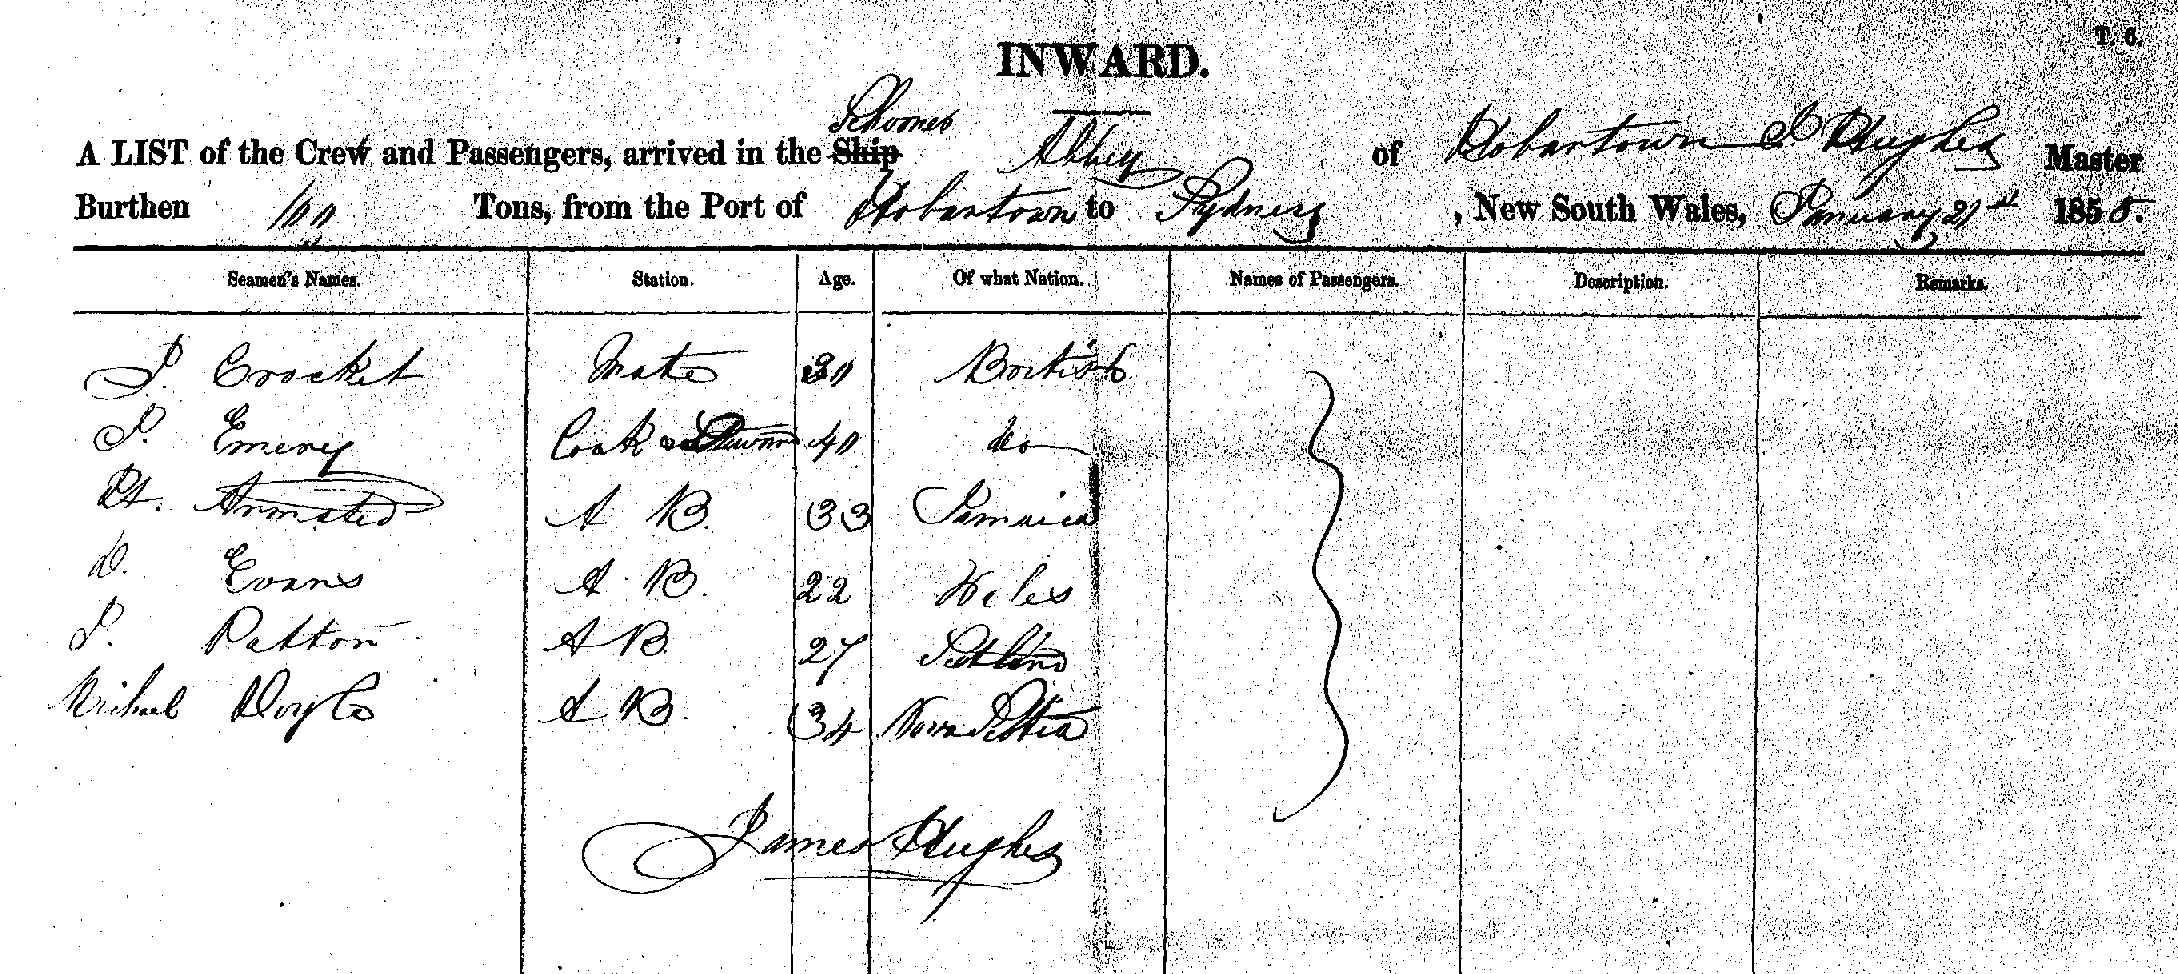 T. 6.
INWARD.
Schooner
A LIST of the Crew and Passengers, arrived in the Ship Abbey of Hobartown J Hughes Master
Burthen 100 Tons, from the Port of Hobartown to Sydney, New South Wales, January 21st 1855.
Seamen's Names. Station. Age. Of what Nation. Names of Passengers. Description. Remarks.
J. Crocket Mate 30 British
J. Emery Cook Steward 40 do
Rt. A B. 33 Jamaica
D. Evans A. B. 22 Wales
J. Patton A B. 27
Michael Doyle A B. 34 Nova Scotia
James Hughes